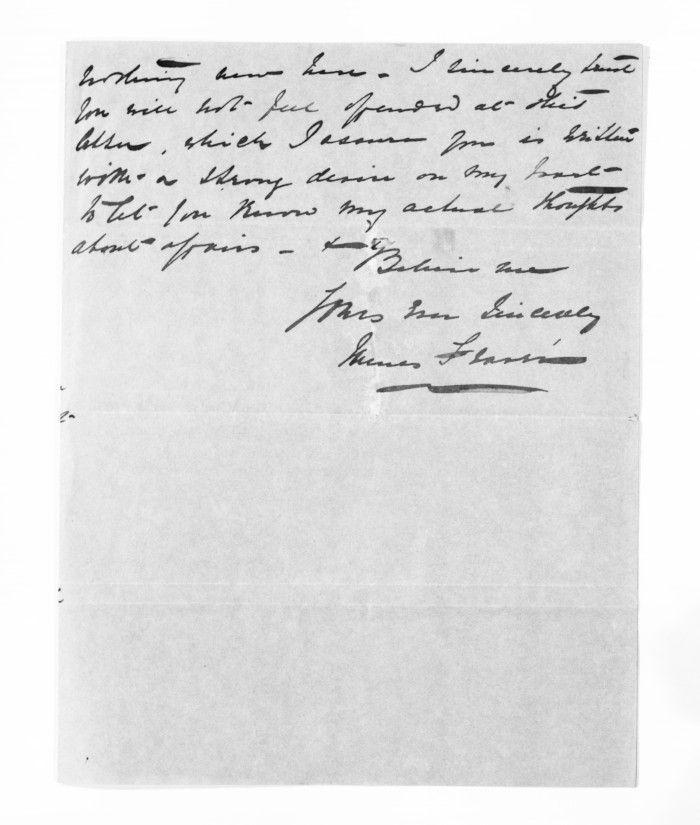 nothing new here - I sincerely trust
you will not feel offended at this
letter, which I assure you is written
with a strong desire on my part
to let you know my actual thoughts
about affairs - &
Believe me
Yours Ever Sincerely
James